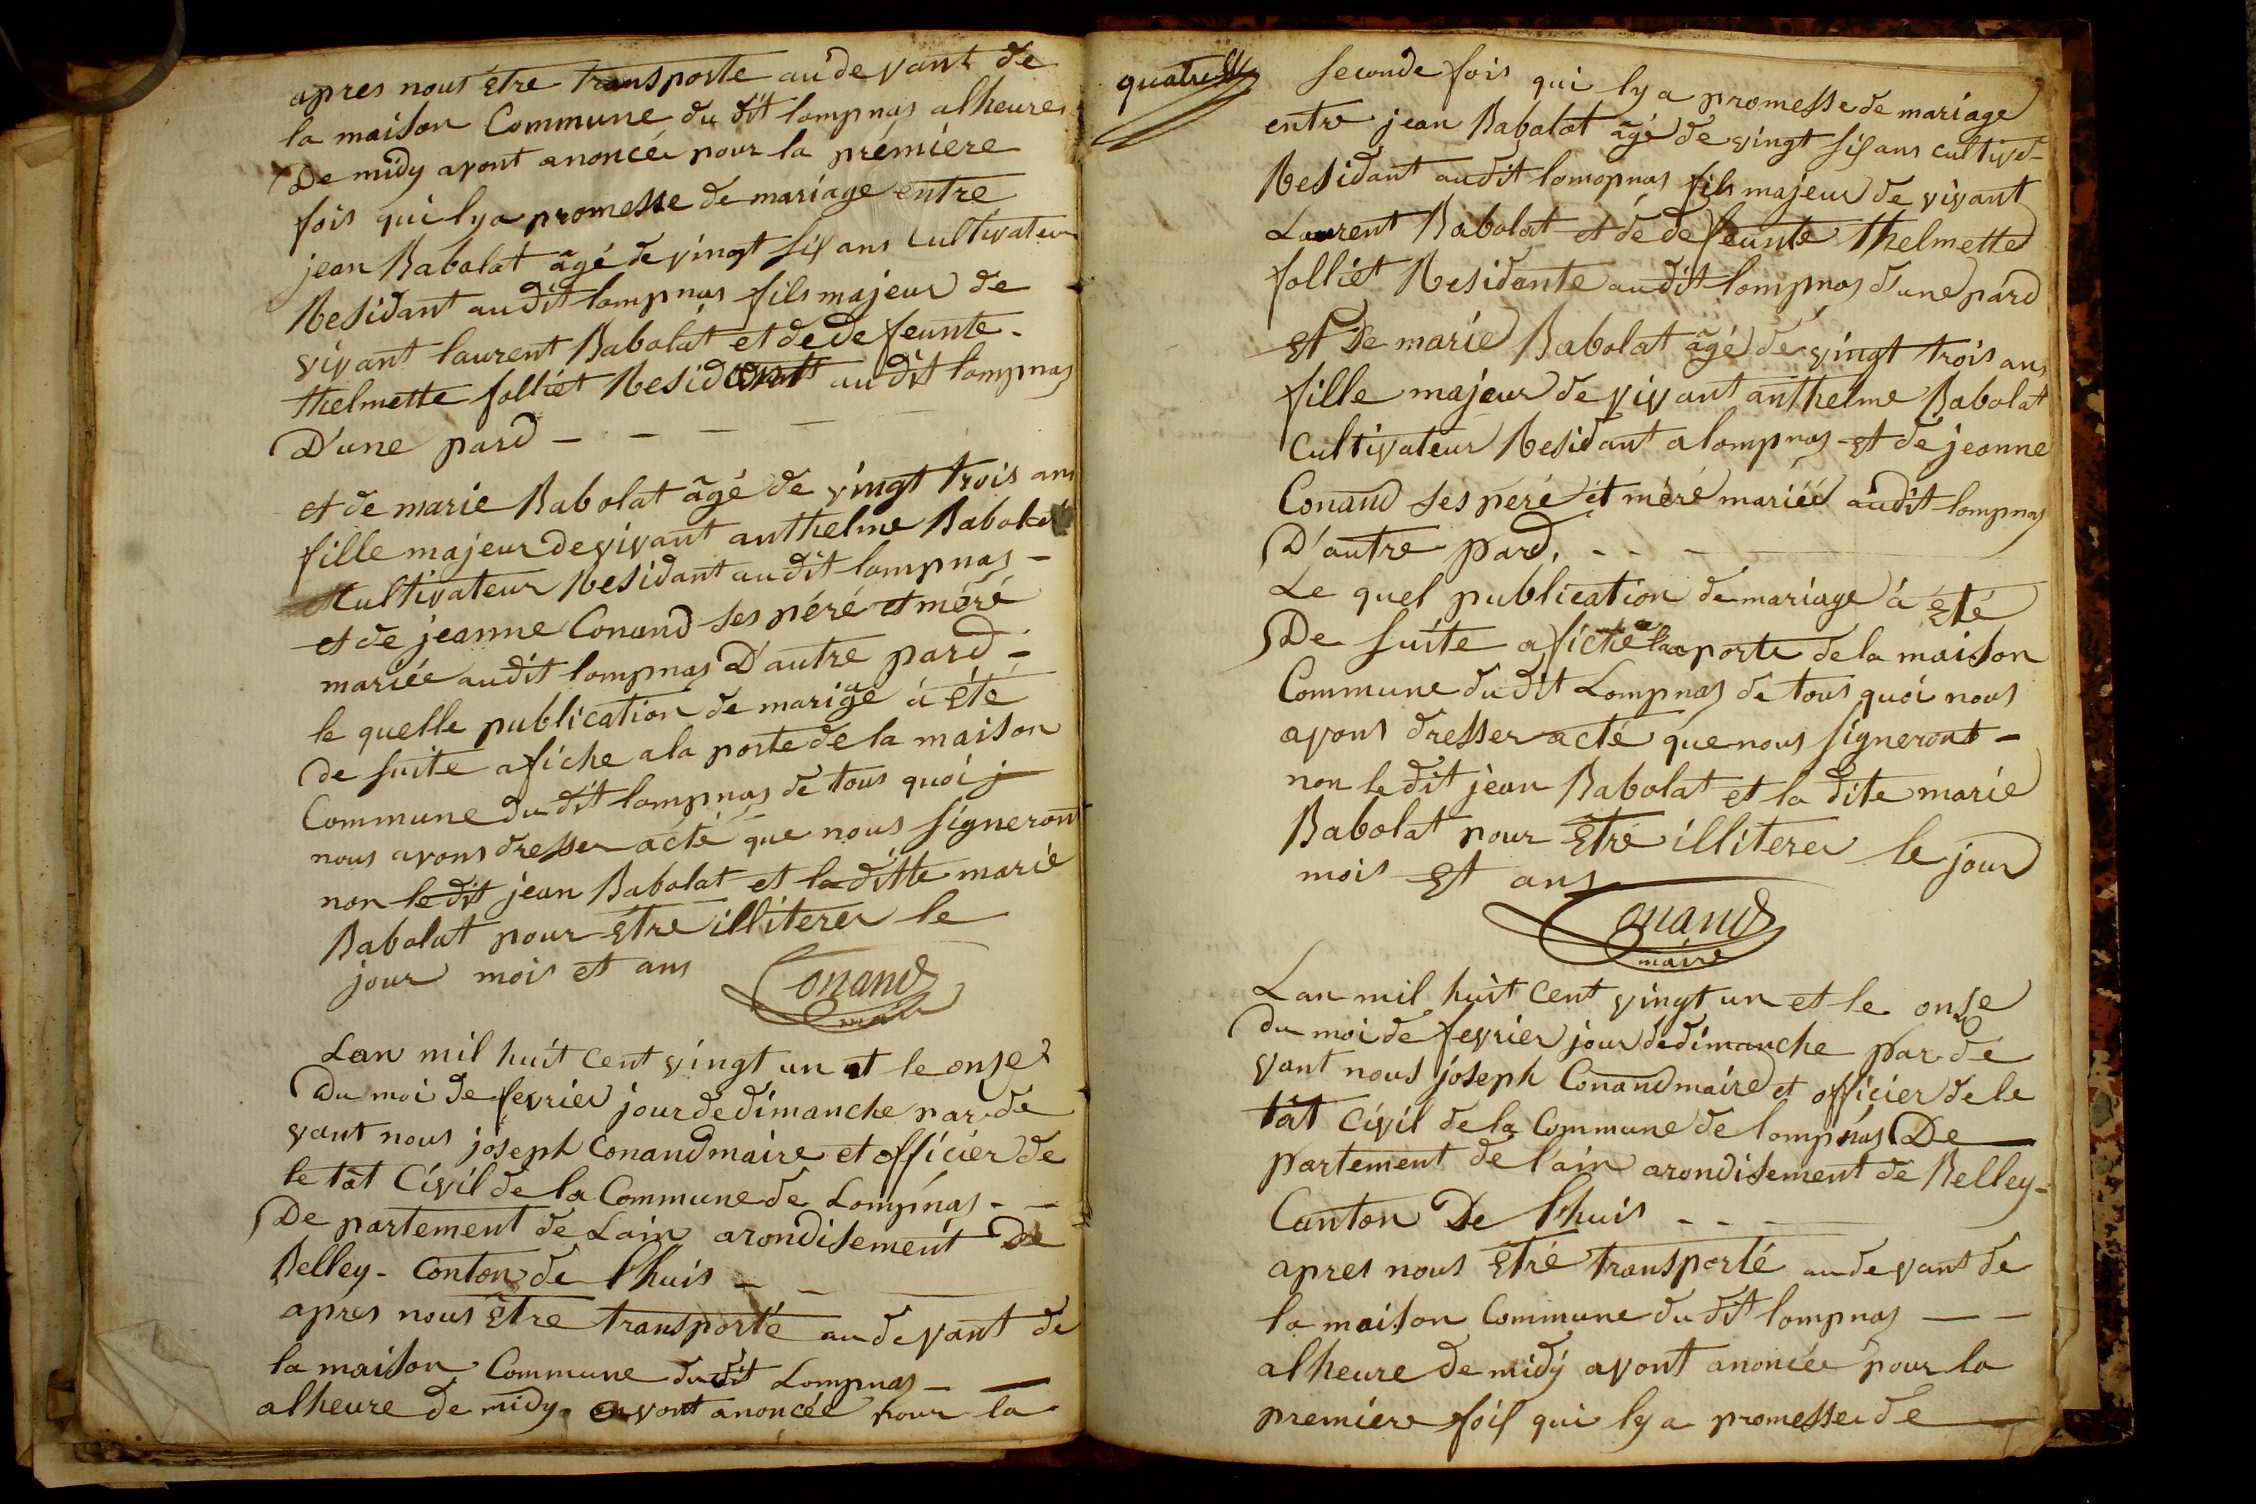 apres nous être transporte au de vant de
la maison Commune du dit lompnas alheures
De midy avont anoncée pour la prémiere
fois qui ly a promesse de mariage entre
jean Babolat âgé de vingt six ans Cultivateur
Residant au dit lompnas fils majeur de
vivant laurent Babolat et de de feunte -
thelmette folliet Residant au dit lompnas
D'une pard - - - -
et de marie Babolat âgé de vingt trois ans
fille majeur de vivant anthelme Babolat
Cultivateur Residant au dit lompnas -
et de jeanne Conand ses péré et méré
mariée au dit lompnas D'autre pard -
le quelle publication de marige à été
de suite afiche a la porte de la maison
Commune du dit lompnas de tous quoi j
nous avons dresser acté que nous signeront
non le dit jean Babolat et la ditte marie
Babolat pour être illiterer le
jour mois et ans Conand
maire
Lan mil huit cent vingt un et le onse
Du moi de fevrier jour de dimanche par de
vant nous joseph Conand maire et officier de
le tât Civil de la Commune de Lompnas - -
De partement de Lain arondisement De
Belley - Conton de l'huis -
apres nous être transporté au de vant de
la maison Commune du dit Lompnas -
alheure de midy avont anoncée pour la
quatre
seconde fois qui ly a promesse de mariage
entre jean Babolat âgé de vingt six ans cultivd-
Residant au dit lomopnas fils majeur de vivant
Laurent Babolat et de de feunte thelmette
folliet Residante au dit lompnas d'une pard
et De marie Babolat âgé de vingt trois ans
fille majeur de vivant anthelme Babolat
Cultivateur Residant a lompnas et de jeanne
Conand ses peré et méré mariéé au dit lompnas
D'autre pard. - - -
Le quel publication de mariage à été
De suite afiché a la porte de la maison
Commune du dit Lompnas de tous quoi nous
avons dresser acté que nous signeront -
non le dit jean Babolat et la dite marie
Babolat pour être illiterer le jour
mois et ans
Conand
maire
Lan mil huit cent vingt un et le onse
du moi de fevrier jour de dimanche par de
vant nous joseph Conand maire et officier de le
tât Civil de la Commune de lompnas De
partement de l'ain arondisement de Belley -
Canton De l'huis - - -
apres nous être transporté au de vant de
la maison Commune du dit lompnas - -
alheure de midy avont anoncée pour la
premiere fois qui ly a promesse de